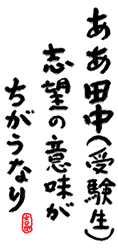 ああ田中(受験生)
志望の意味が
ちがうなり